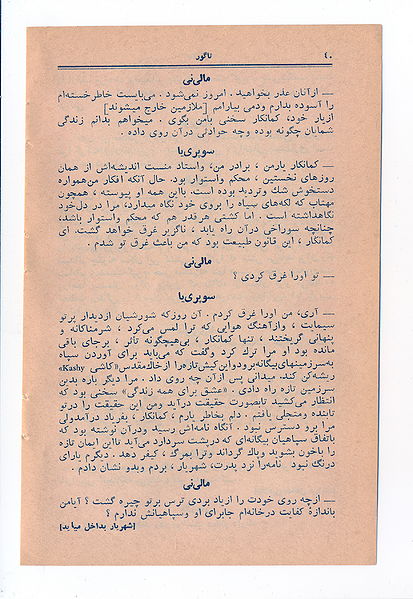 ۴۰
تاگور
مالی‌نی
— ازآنان عذر بخواهید . امروز نمی‌شود . می‌بایست خاطرخسته‌ام
را آسوده بدارم ودمی بیارامم [ملازمین خارج میشوند]
ازیار خود، کمانکار سخنی بامن بگوی . میخواهم بدانم زندگی
شمایان چگونه بوده وچه حوادثی درآن روی داده .
سوپری‌یا
— کمانکار یارمن ، برادر من، واستاد منست اندیشه‌اش از همان
روزهای نخستین ، محکم واستوار بود. حال آنکه افکار من‌همواره
دستخوش شك وتردید بوده است. بااین همه او پیوسته ، همچون
مهتاب که لکه‌های سیاه را بروی خود نگاه میدارد، مرا در دل‌خود
نگاهداشته است . اما کشتی هرقدر هم که محکم واستوار باشد،
چنانچه سوراخی درآن راه یابد ، ناگزیر غرق خواهد گشت. ای
کمانکار ، این قانون طبیعت بود که من باعث غرق تو شدم .
مالی‌نی
— تو اورا غرق کردی ؟
سوپری‌یا
— آری، من اورا غرق کردم . آن روزکه شورشیان ازدیدار پرتو
سیمایت ، وازآهنگ هوایی که ترا لمس می‌کرد ، شرمناکانه و
پنهانی گریختند ، تنها کمانکار ، بی‌هیچگونه تأثر ، برجای باقی
مانده بود او مرا ترك کرد وگفت که می‌باید برای آوردن سپاه
به‌سرزمینهای بیگانه‌برودواین‌کیش‌تازه‌را ازخاك‌مقدس«کاشی Kashy»
ریشه‌کن کند. میدانی پس ازآن چه روی داد . مرا دیگر باره بدین
سرزمین تازه راه دادی . «عشق برای همه زندگی» سخنی بود که
انتظار می‌کشید تابصورت حقیقت درآید ومن این حقیقت را درتو
تابنده ومتجلی یافتم . دلم بخاطر یارم ، کمانکار ، بفریاد درآمدولی
مرا برو دسترس نبود . آنگاه نامه‌اش رسید ودرآن نوشته بود که
باتفاق سپاهیان بیگانه‌ای که درپشت سردارد می‌آید تااین ایمان تازه
را باخون بشوید وپاك گرداند وترا بمرگ ، کیفر دهد . دیگرم یارای
درنگ نبود نامه‌را نزد پدرت، شهریار ، بردم وبدو نشان دادم .
مالی‌نی
— ازچه روی خودت را ازیاد بردی ترس برتو چیره گشت ؟ آیامن
باندازهٔ کفایت درخانه‌ام جابرای او وسپاهیانش ندارم ؟
[شهریار بداخل میآید]